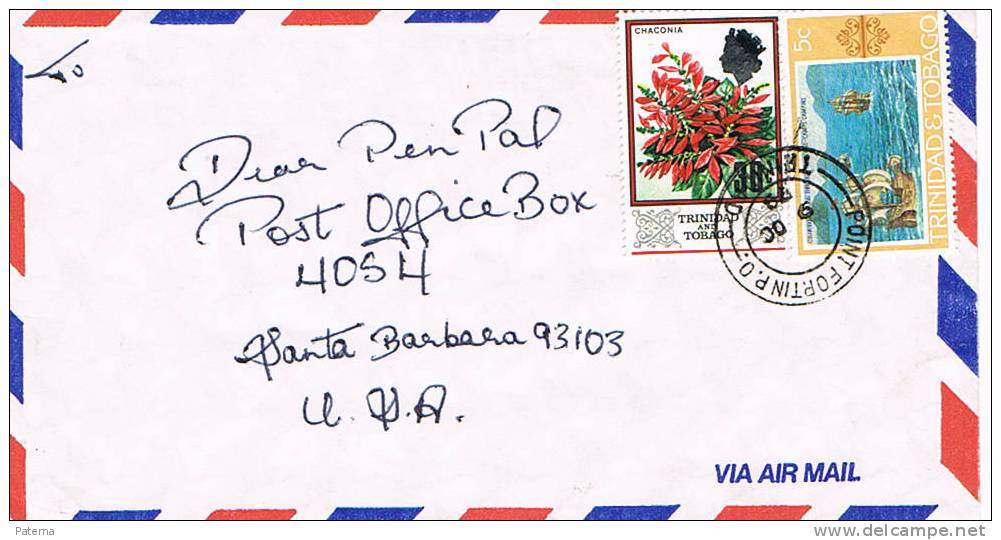 To
Dear Pen Pal
Post Office Box
4054
Santa Barbara 93103
U.S.A.
VIA AIR MAIL
CHACONIA
TRINIDAD
AND
TOBAGO
5c
TRINIDAD & TOBAGO
POINT FORTIN P.O.
Paterna
www.delcampe.net